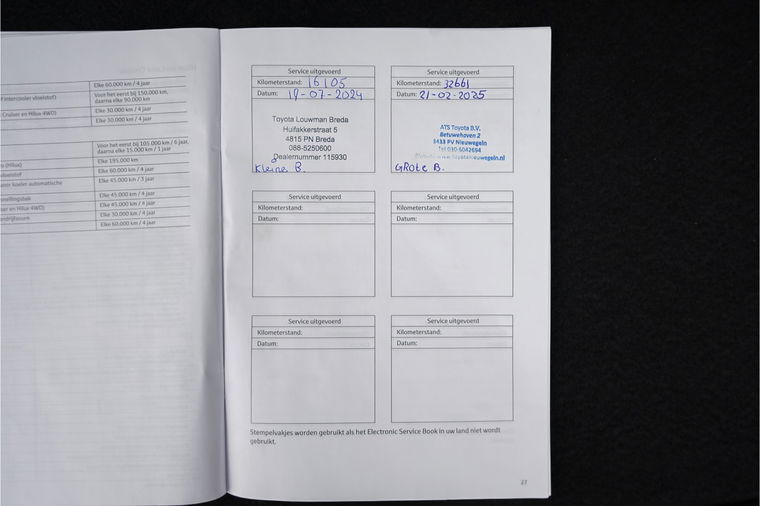 Elke 60.000 km / 4 jaar
Voor het eerst bij 150.000 km,
daarna elke 90.000 km
Elke 30.000 km / 4 jaar
Cruiser en Hilux 4WD)
Elke 30.000 km / 4 jaar
Voor het eerst bij 105.000 km / 6 jaar,
daarna elke 15.000 km / 1 jaar
Elke 195.000 km
(Hilux)
Elke 60.000 km / 4 jaar
vloeistof
Elke 45.000 km / 3 jaar
koeler automatische
Elke 45.000 km / 4 jaar
Elke 45.000 km / 4 jaar
en Hilux 4WD)
Elke 30.000 km / 4 jaar
Elke 60.000 km / 4 jaar
Service uitgevoerd
Kilometerstand: 16105
Datum: 19-07-2024
Toyota Louwman Breda
Huifakkerstraat 5
4815 PN Breda
088-5250600
Dealernummer 115930
Kleine B.
Service uitgevoerd
Kilometerstand: 32661
Datum: 21-02-2025
ATS Toyota B.V.
Betuwehoven 2
3433 PV Nieuwegein
Tel 030-6042694
GROte B.
Service uitgevoerd
Kilometerstand:
Datum:
Service uitgevoerd
Kilometerstand:
Datum:
Service uitgevoerd
Kilometerstand:
Datum:
Service uitgevoerd
Kilometerstand:
Datum:
Stempelvakjes worden gebruikt als het Electronic Service Book in uw land niet wordt
gebruikt.
27